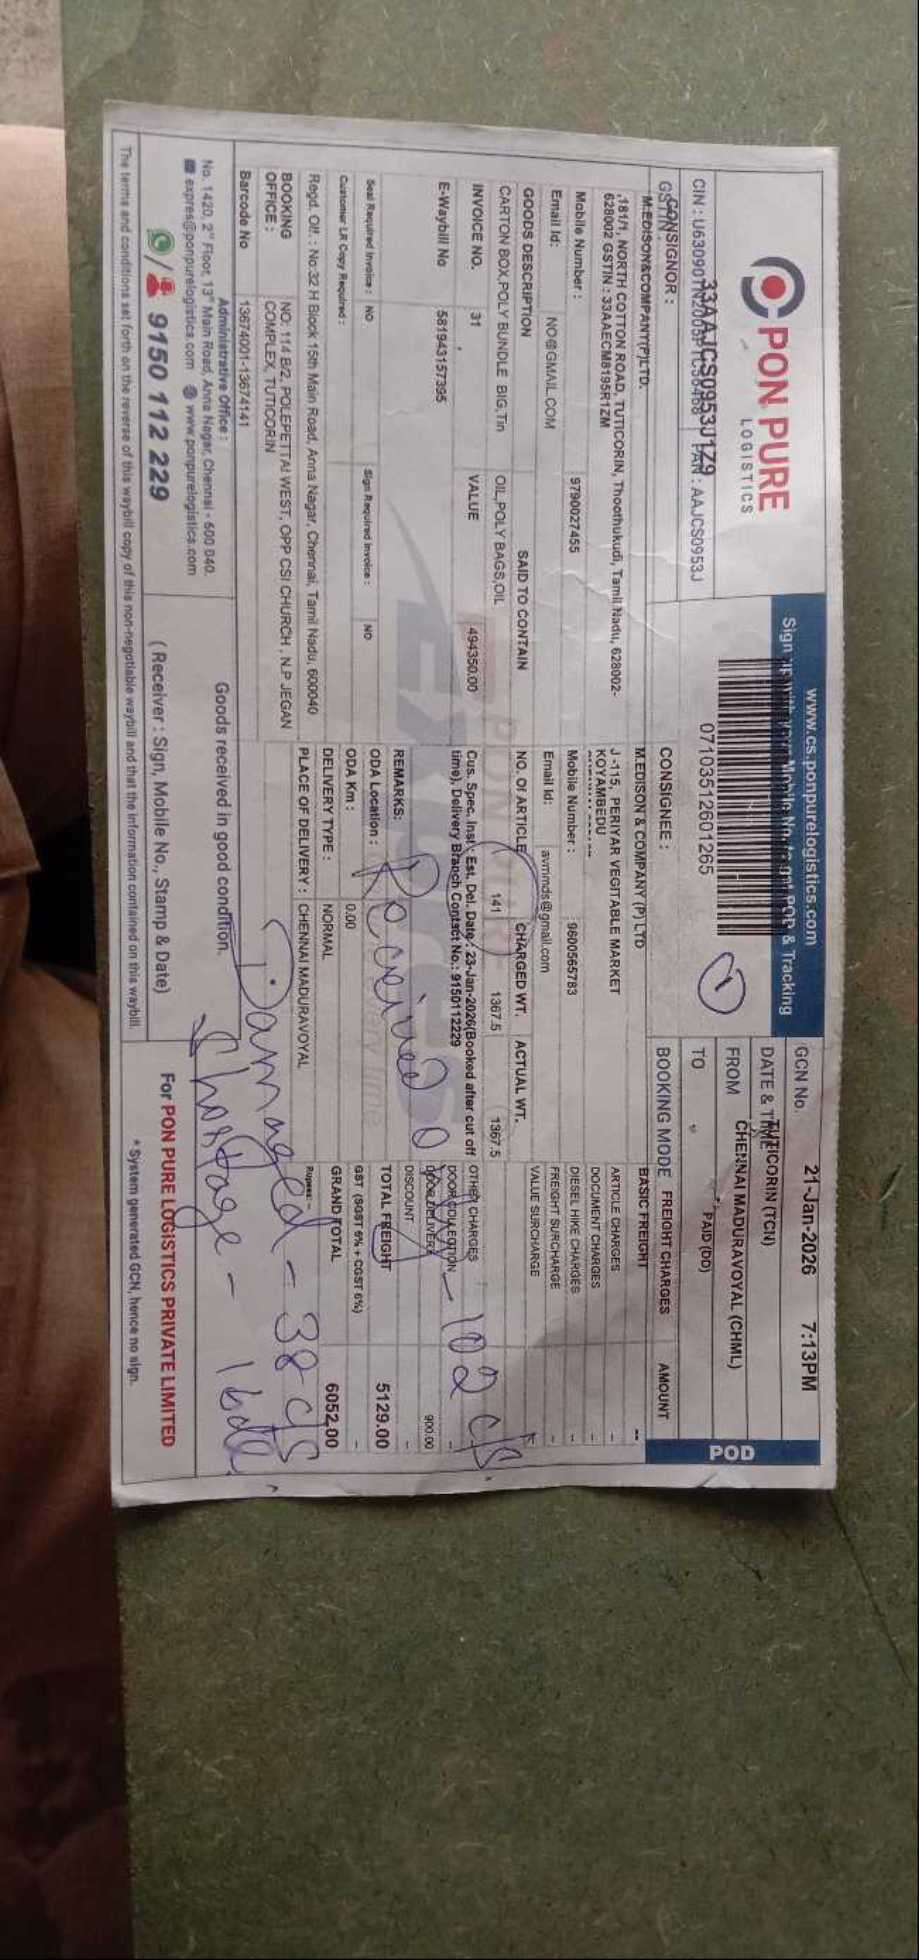 PON PURE
LOGISTICS
CIN : PAN : AAJCS0953J
33AAJCS0953J1Z9
www.cs.ponpurelogistics.com
Sign up with your Mobile No. to get POD & Tracking
07103512601265
1
GCN No. 21-Jan-2026 7:13PM
DATE & TIME
TUTICORIN (TCN)
FROM CHENNAI MADURAVOYAL (CHML)
TO PAID (DD)
POD
GSTIN :
CONSIGNOR :
M.EDISON&COMPANY(P)LTD.
,181/1, NORTH COTTON ROAD, TUTICORIN, Thoothukudi, Tamil Nadu, 628002-
628002 GSTIN : 33AAECM8195R1ZM
Mobile Number : 9790027455
Email Id: NO@GMAIL.COM
CONSIGNEE :
M.EDISON & COMPANY (P) LTD
J -115, PERIYAR VEGITABLE MARKET
KOYAMBEDU
Mobile Number : 9600565783
Email Id: avmmds@gmail.com
BOOKING MODE FREIGHT CHARGES AMOUNT
BASIC FREIGHT --
ARTICLE CHARGES --
DOCUMENT CHARGES --
DIESEL HIKE CHARGES --
FREIGHT SURCHARGE --
VALUE SURCHARGE
OTHER CHARGES
DOOR COLLECTION --
DOOR DELIVERY 900.00
DISCOUNT --
TOTAL FREIGHT 5129.00
GST (SGST 6% + CGST 6%) --
GRAND TOTAL 6052.00
Rupees:-
GOODS DESCRIPTION SAID TO CONTAIN NO. Of ARTICLE CHARGED WT. ACTUAL WT.
CARTON BOX,POLY BUNDLE BIG,Tin OIL,POLY BAGS,OIL 141 1367.5 1367.5
INVOICE NO. 31 VALUE 494350.00
E-Waybill No 581943157395
Cus. Spec. Inst : Est. Del. Date : 23-Jan-2026(Booked after cut off
time), Delivery Branch Contact No.: 9150112229
REMARKS:
Seal Required Invoice : NO Sign Required Invoice : NO
Customer LR Copy Required :
ODA Location :
ODA Km : 0.00
DELIVERY TYPE : NORMAL
PLACE OF DELIVERY : CHENNAI MADURAVOYAL
Regd. Off. : No:32 H Block 15th Main Road, Anna Nagar, Chennai, Tamil Nadu, 600040
BOOKING NO: 114 B/2, POLEPETTAI WEST, OPP CSI CHURCH , N.P JEGAN
OFFICE : COMPLEX, TUTICORIN
Barcode No 13674001-13674141
Received
102 c/s
Damaged - 38 c/s
Shortage -
Administrative Office :
No. 1420, 2nd Floor, 13th Main Road, Anna Nagar, Chennai - 600 040.
expres@ponpurelogistics.com www.ponpurelogistics.com
/ 9150 112 229
Goods received in good condition.
( Receiver : Sign, Mobile No., Stamp & Date)
For PON PURE LOGISTICS PRIVATE LIMITED
* System generated GCN, hence no sign.
The terms and conditions set forth on the reverse of this waybill copy of this non-negotiable waybill and that the information contained on this waybill.